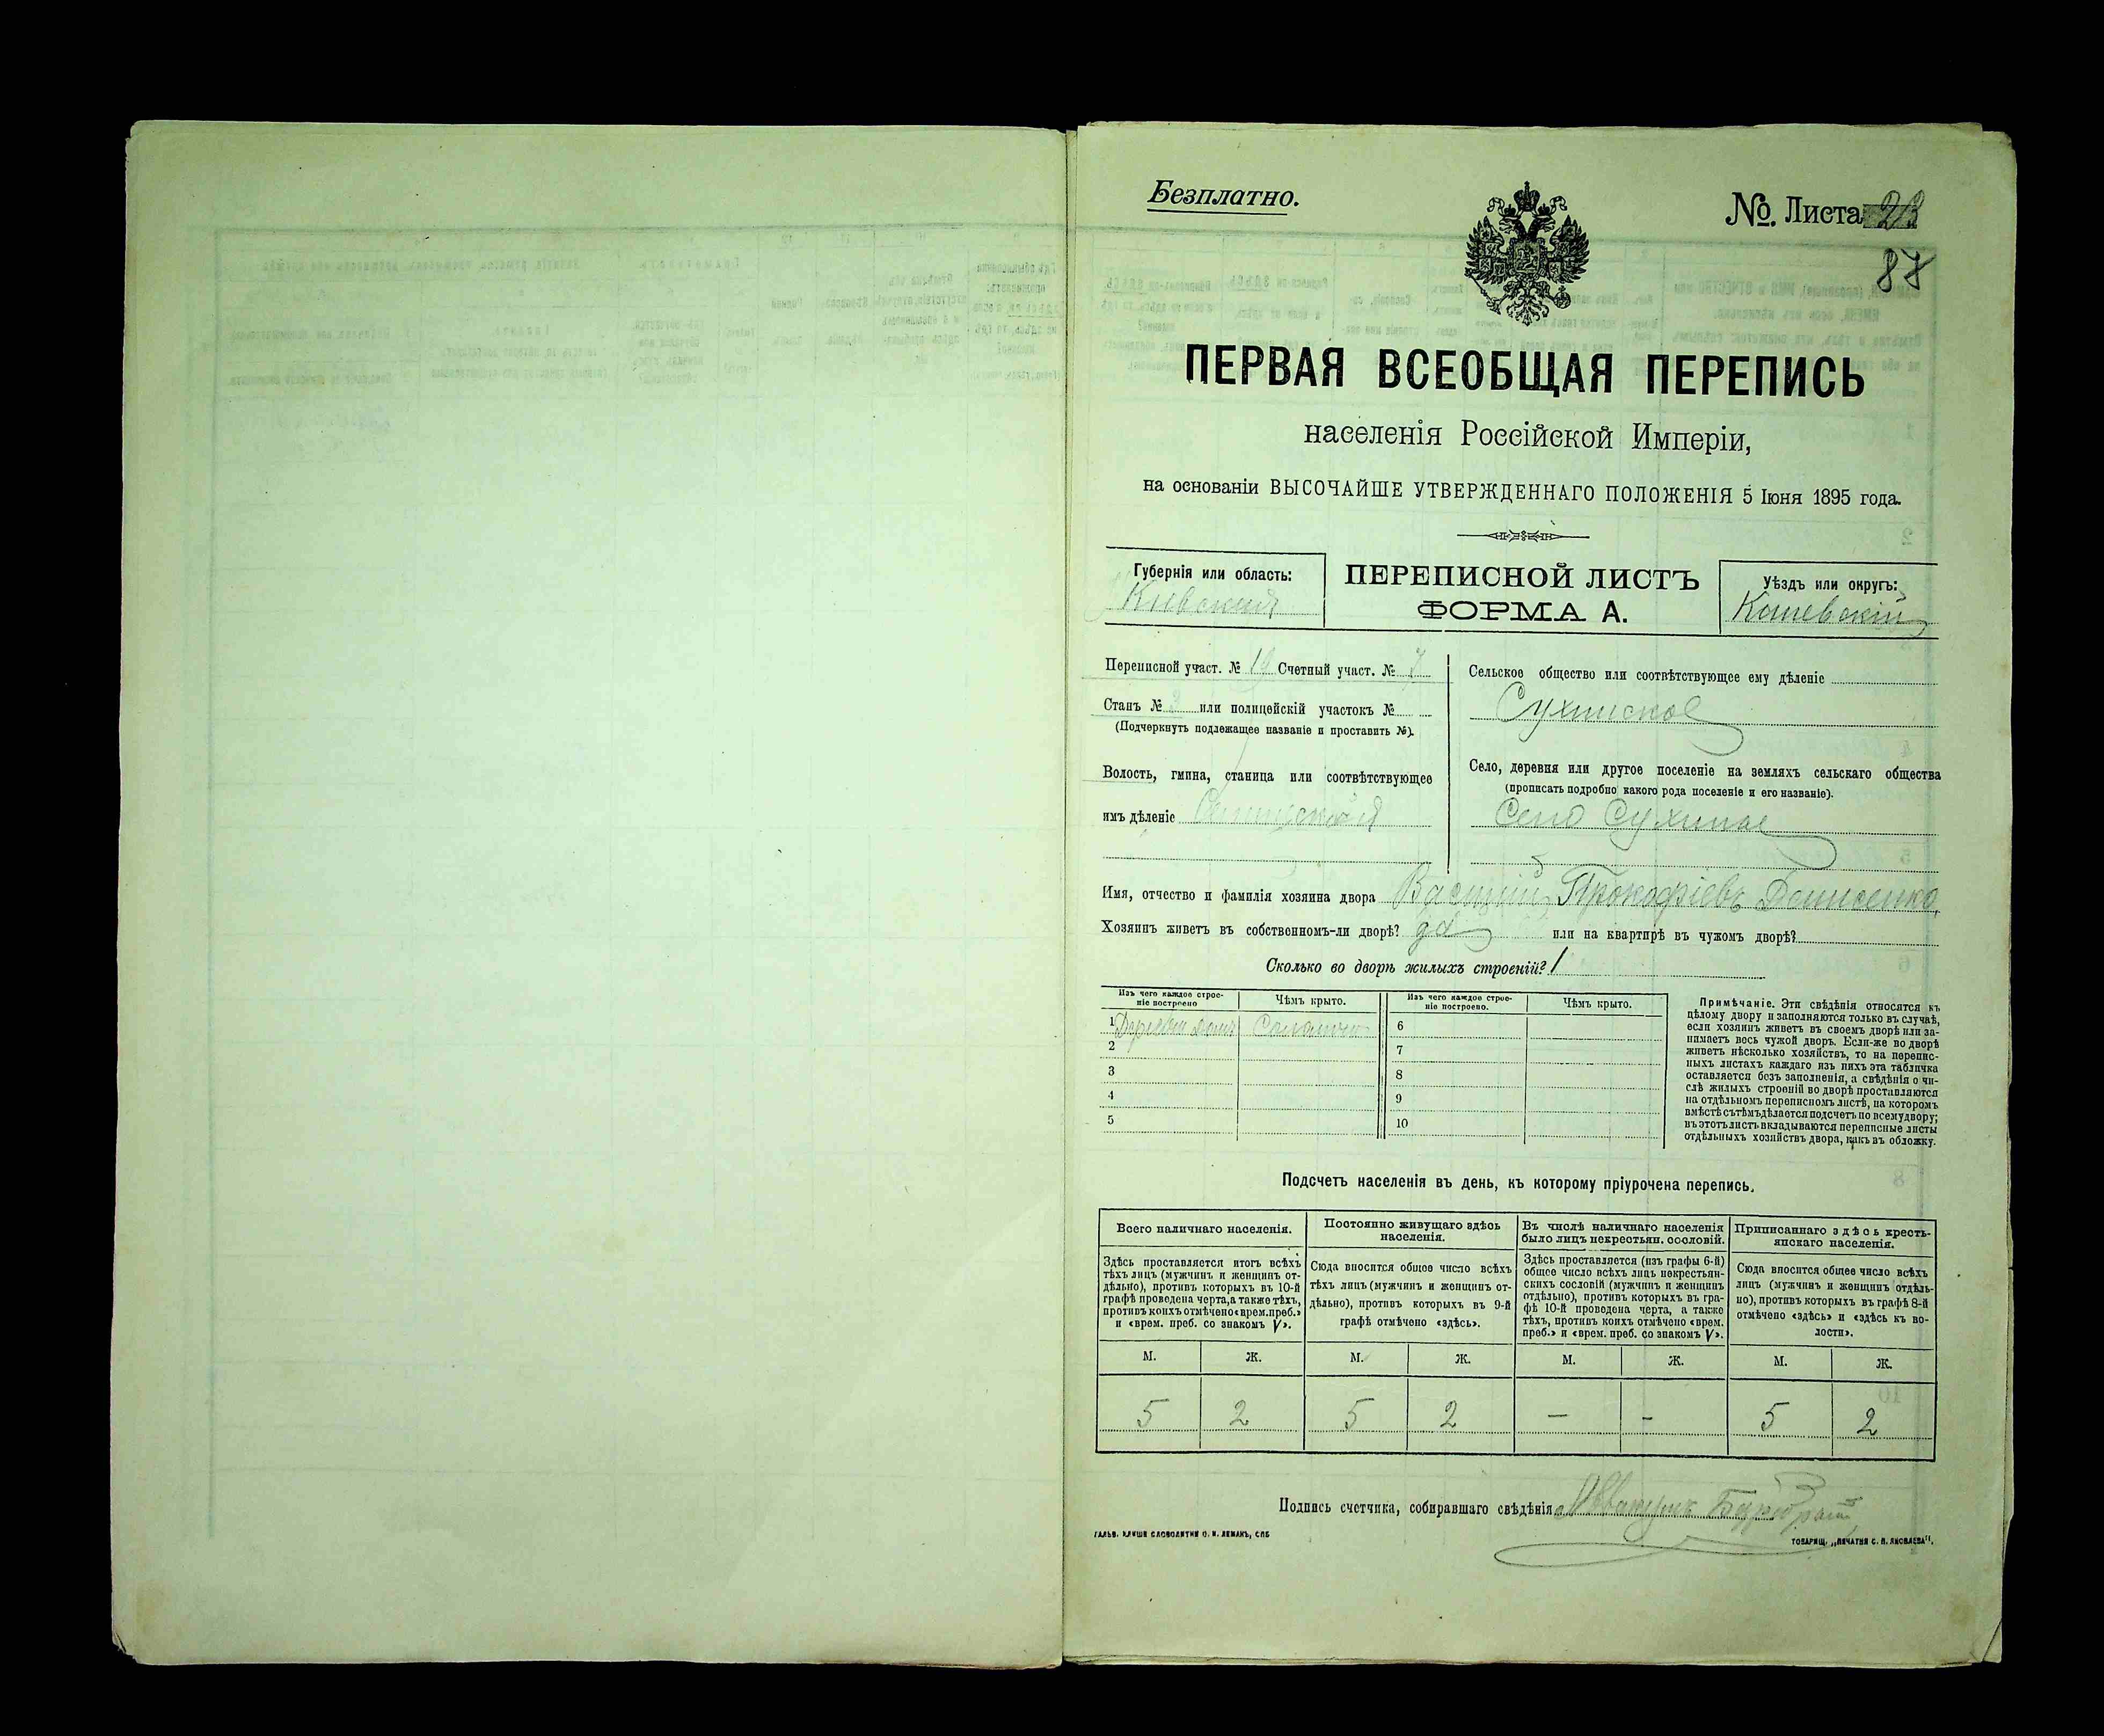 Безплатно.
№ Листа 23
87
ПЕРВАЯ ВСЕОБЩАЯ ПЕРЕПИСЬ
населенія Россійской Имперіи,
на основаніи ВЫСОЧАЙШЕ УТВЕРЖДЕННАГО ПОЛОЖЕНІЯ 5 Іюня 1895 года.
Губернія или область:
Кіевская
ПЕРЕПИСНОЙ ЛИСТЪ
ФОРМА А.
Уѣздъ или округъ:
Каневскій
Переписной участ. № 19 Счетный участ. № 7
Станъ № 3 или полицейскій участокъ №
(Подчеркнуть подлежащее названіе и проставить №).
Волость, гмина, станица или соотвѣтствующее
имъ дѣленіе
Сельское общество или соотвѣтствующее ему дѣленіе
Сухинское
Село, деревня или другое поселеніе на земляхъ сельскаго общества
(прописать подробно какого рода поселеніе и его названіе).
Село Сухины
Имя, отчество и фамилія хозяина двора Василій Прокофіевъ Денисенко
Хозяинъ живетъ въ собственномъ-ли дворѣ? да или на квартирѣ въ чужомъ дворѣ?
Сколько во дворѣ жилыхъ строеній? 1
Изъ чего каждое строе-
ніе построено
Чѣмъ крыто.
Изъ чего каждое строе-
ніе построено.
Чѣмъ крыто.
1 Соломою
2
3
4
5
6
7
8
9
10
Примѣчаніе. Эти свѣдѣнія относятся къ
цѣлому двору и заполняются только въ случаѣ,
если хозяинъ живетъ въ своемъ дворѣ или за-
нимаетъ весь чужой дворъ. Если-же во дворѣ
живетъ нѣсколько хозяйствъ, то на перепис-
ныхъ листахъ каждаго изъ нихъ эта табличка
оставляется безъ заполненія, а свѣдѣнія о чи-
слѣ жилыхъ строеній во дворѣ проставляются
на отдѣльномъ переписномъ листѣ, на которомъ
вмѣстѣ съ тѣмъ дѣлается подсчетъ по всему двору;
въ этотъ листъ вкладываются переписные листы
отдѣльныхъ хозяйствъ двора, какъ въ обложку.
Подсчетъ населенія въ день, къ которому пріурочена перепись.
Всего наличнаго населенія.
Постоянно живущаго здѣсь
населенія.
Въ числѣ наличнаго населенія
было лицъ некрестьян. сословій.
Приписаннаго здѣсь кресть-
янскаго населенія.
Здѣсь проставляется итогъ всѣхъ
тѣхъ лицъ (мужчинъ и женщинъ от-
дѣльно), противъ которыхъ въ 10-й
графѣ проведена черта, а также тѣхъ,
противъ коихъ отмѣчено «врем. преб.»
и «врем. преб. со знакомъ V».
Сюда вносится общее число всѣхъ
тѣхъ лицъ (мужчинъ и женщинъ от-
дѣльно), противъ которыхъ въ 9-й
графѣ отмѣчено «здѣсь».
Здѣсь проставляется (изъ графы 6-й)
общее число всѣхъ лицъ некрестьян-
скихъ сословій (мужчинъ и женщинъ
отдѣльно), противъ которыхъ въ гра-
фѣ 10-й проведена черта, а также
тѣхъ, противъ коихъ отмѣчено «врем.
преб.» и «врем. преб. со знакомъ V».
Сюда вносится общее число всѣхъ
лицъ (мужчинъ и женщинъ отдѣль-
но), противъ которыхъ въ графѣ 8-й
отмѣчено «здѣсь» и «здѣсь къ во-
лости».
М. Ж. М. Ж. М. Ж. М. Ж.
5 2 5 2 — - 5 2
Подпись счетчика, собиравшаго свѣдѣнія
ГАЛЬВ. КЛИШЕ СЛОВОЛИТНИ О. И. ЛЕМАНЪ, СПБ
ТОВАРИЩ. „ПЕЧАТНЯ С. П. ЯКОВЛЕВА".